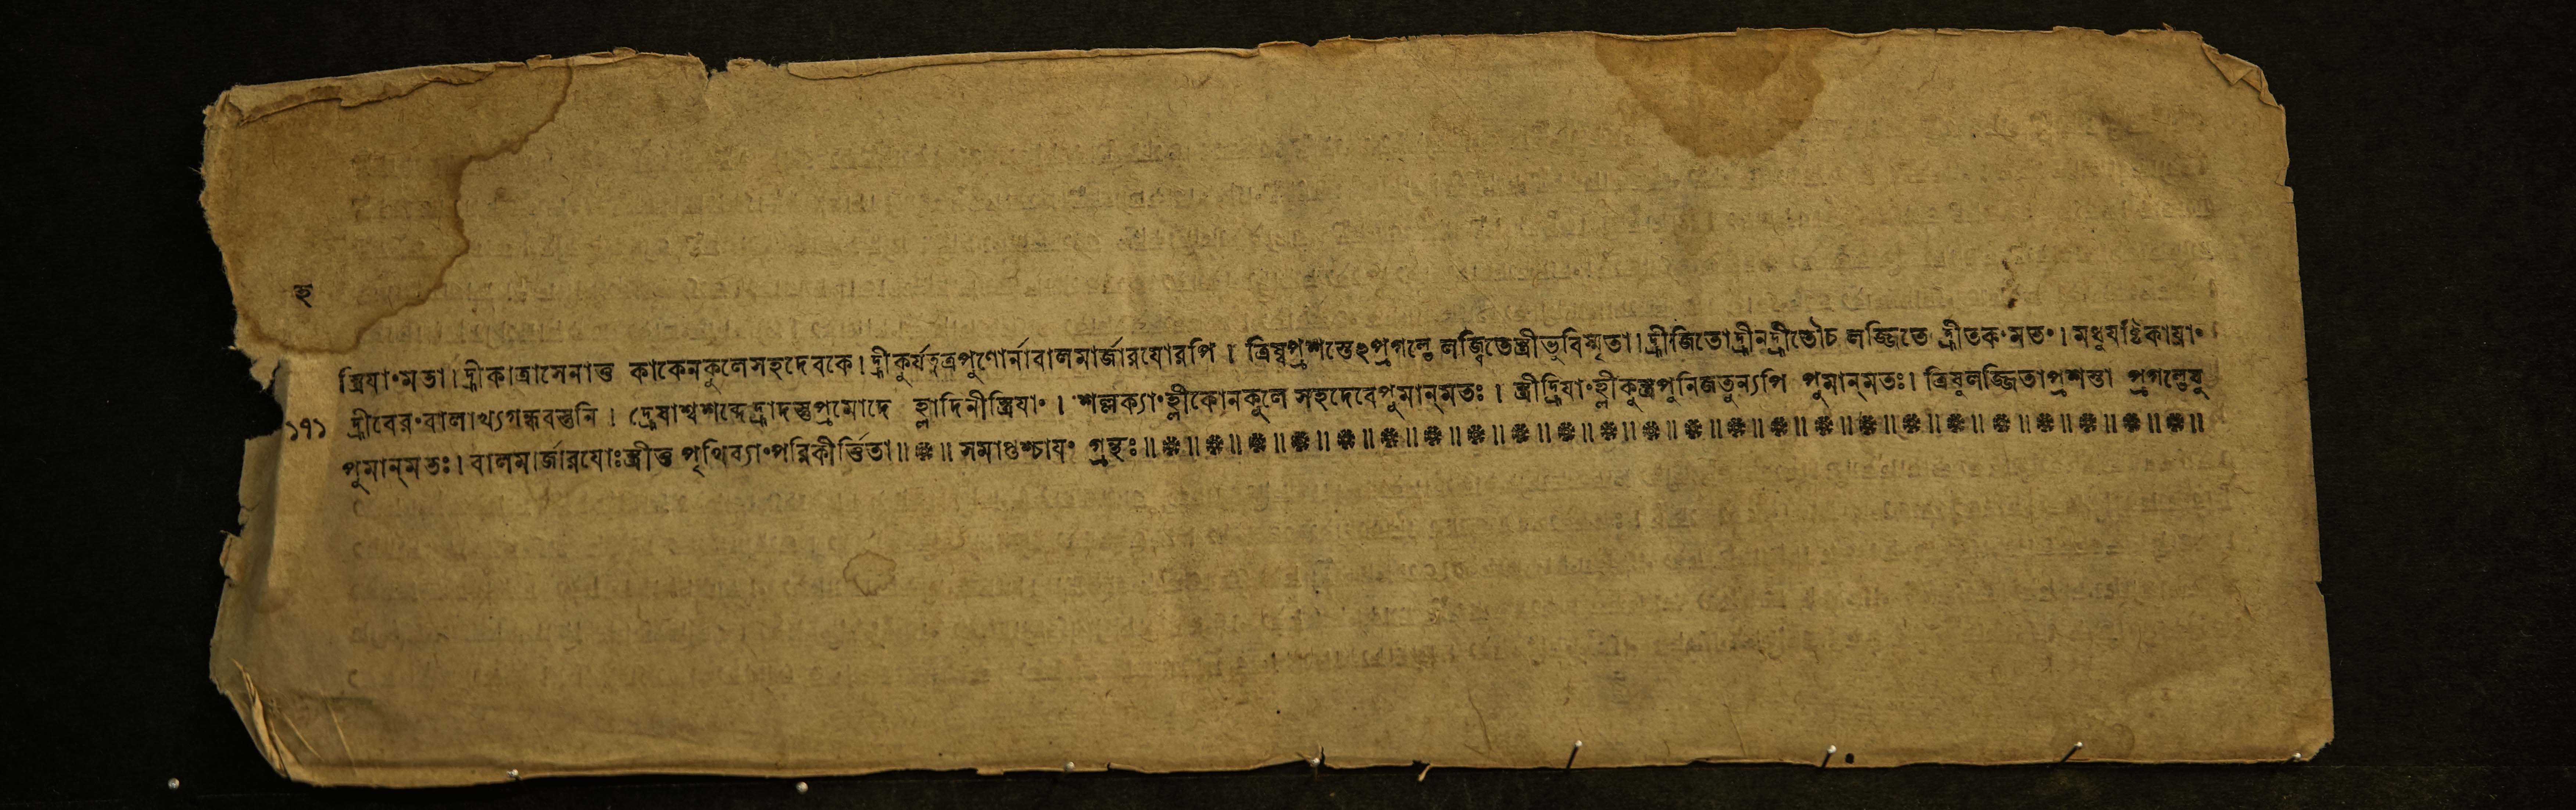 হ
স্ত্রিযাংমতা। হ্রীকাত্রাসেনাত্ত কাকেনকুলেসহদেবকে। হ্রীকুর্যতুত্রপুণোর্নাবালমার্জারযোরপি । ত্রিষ্বপ্রশস্তেঽপ্রগল্ভে লজ্জিতেস্ত্রীভুবিস্মৃতা। হ্রীজিতোহ্রীনহ্রীতৌচ লজ্জিতে হ্রীতকংমতং। মধুযষ্টিকাযাং
১৭১ হ্রীবেরংবালাখ্যগন্ধবস্তুনি । হ্রেষাশ্বশব্দেহ্রাদস্তুপ্রমোদে হ্লাদিনীস্ত্রিযাং । শল্লক্যাংহ্লীকোনকুলে সহদেবেপুমান্মতঃ । স্ত্রীহ্রিযাংহ্লীকুস্ত্রপুনিজতুন্যপি পুমান্মতঃ। ত্রিষুলজ্জিতাপ্রশস্তা প্রগল্ভেষু
পুমান্মতঃ। বালমার্জারযোঃস্ত্রীত্ত পৃথিব্যাংপরিকীর্ত্তিতা॥ ॥ সমাপ্তশ্চাযং গ্রন্থঃ॥